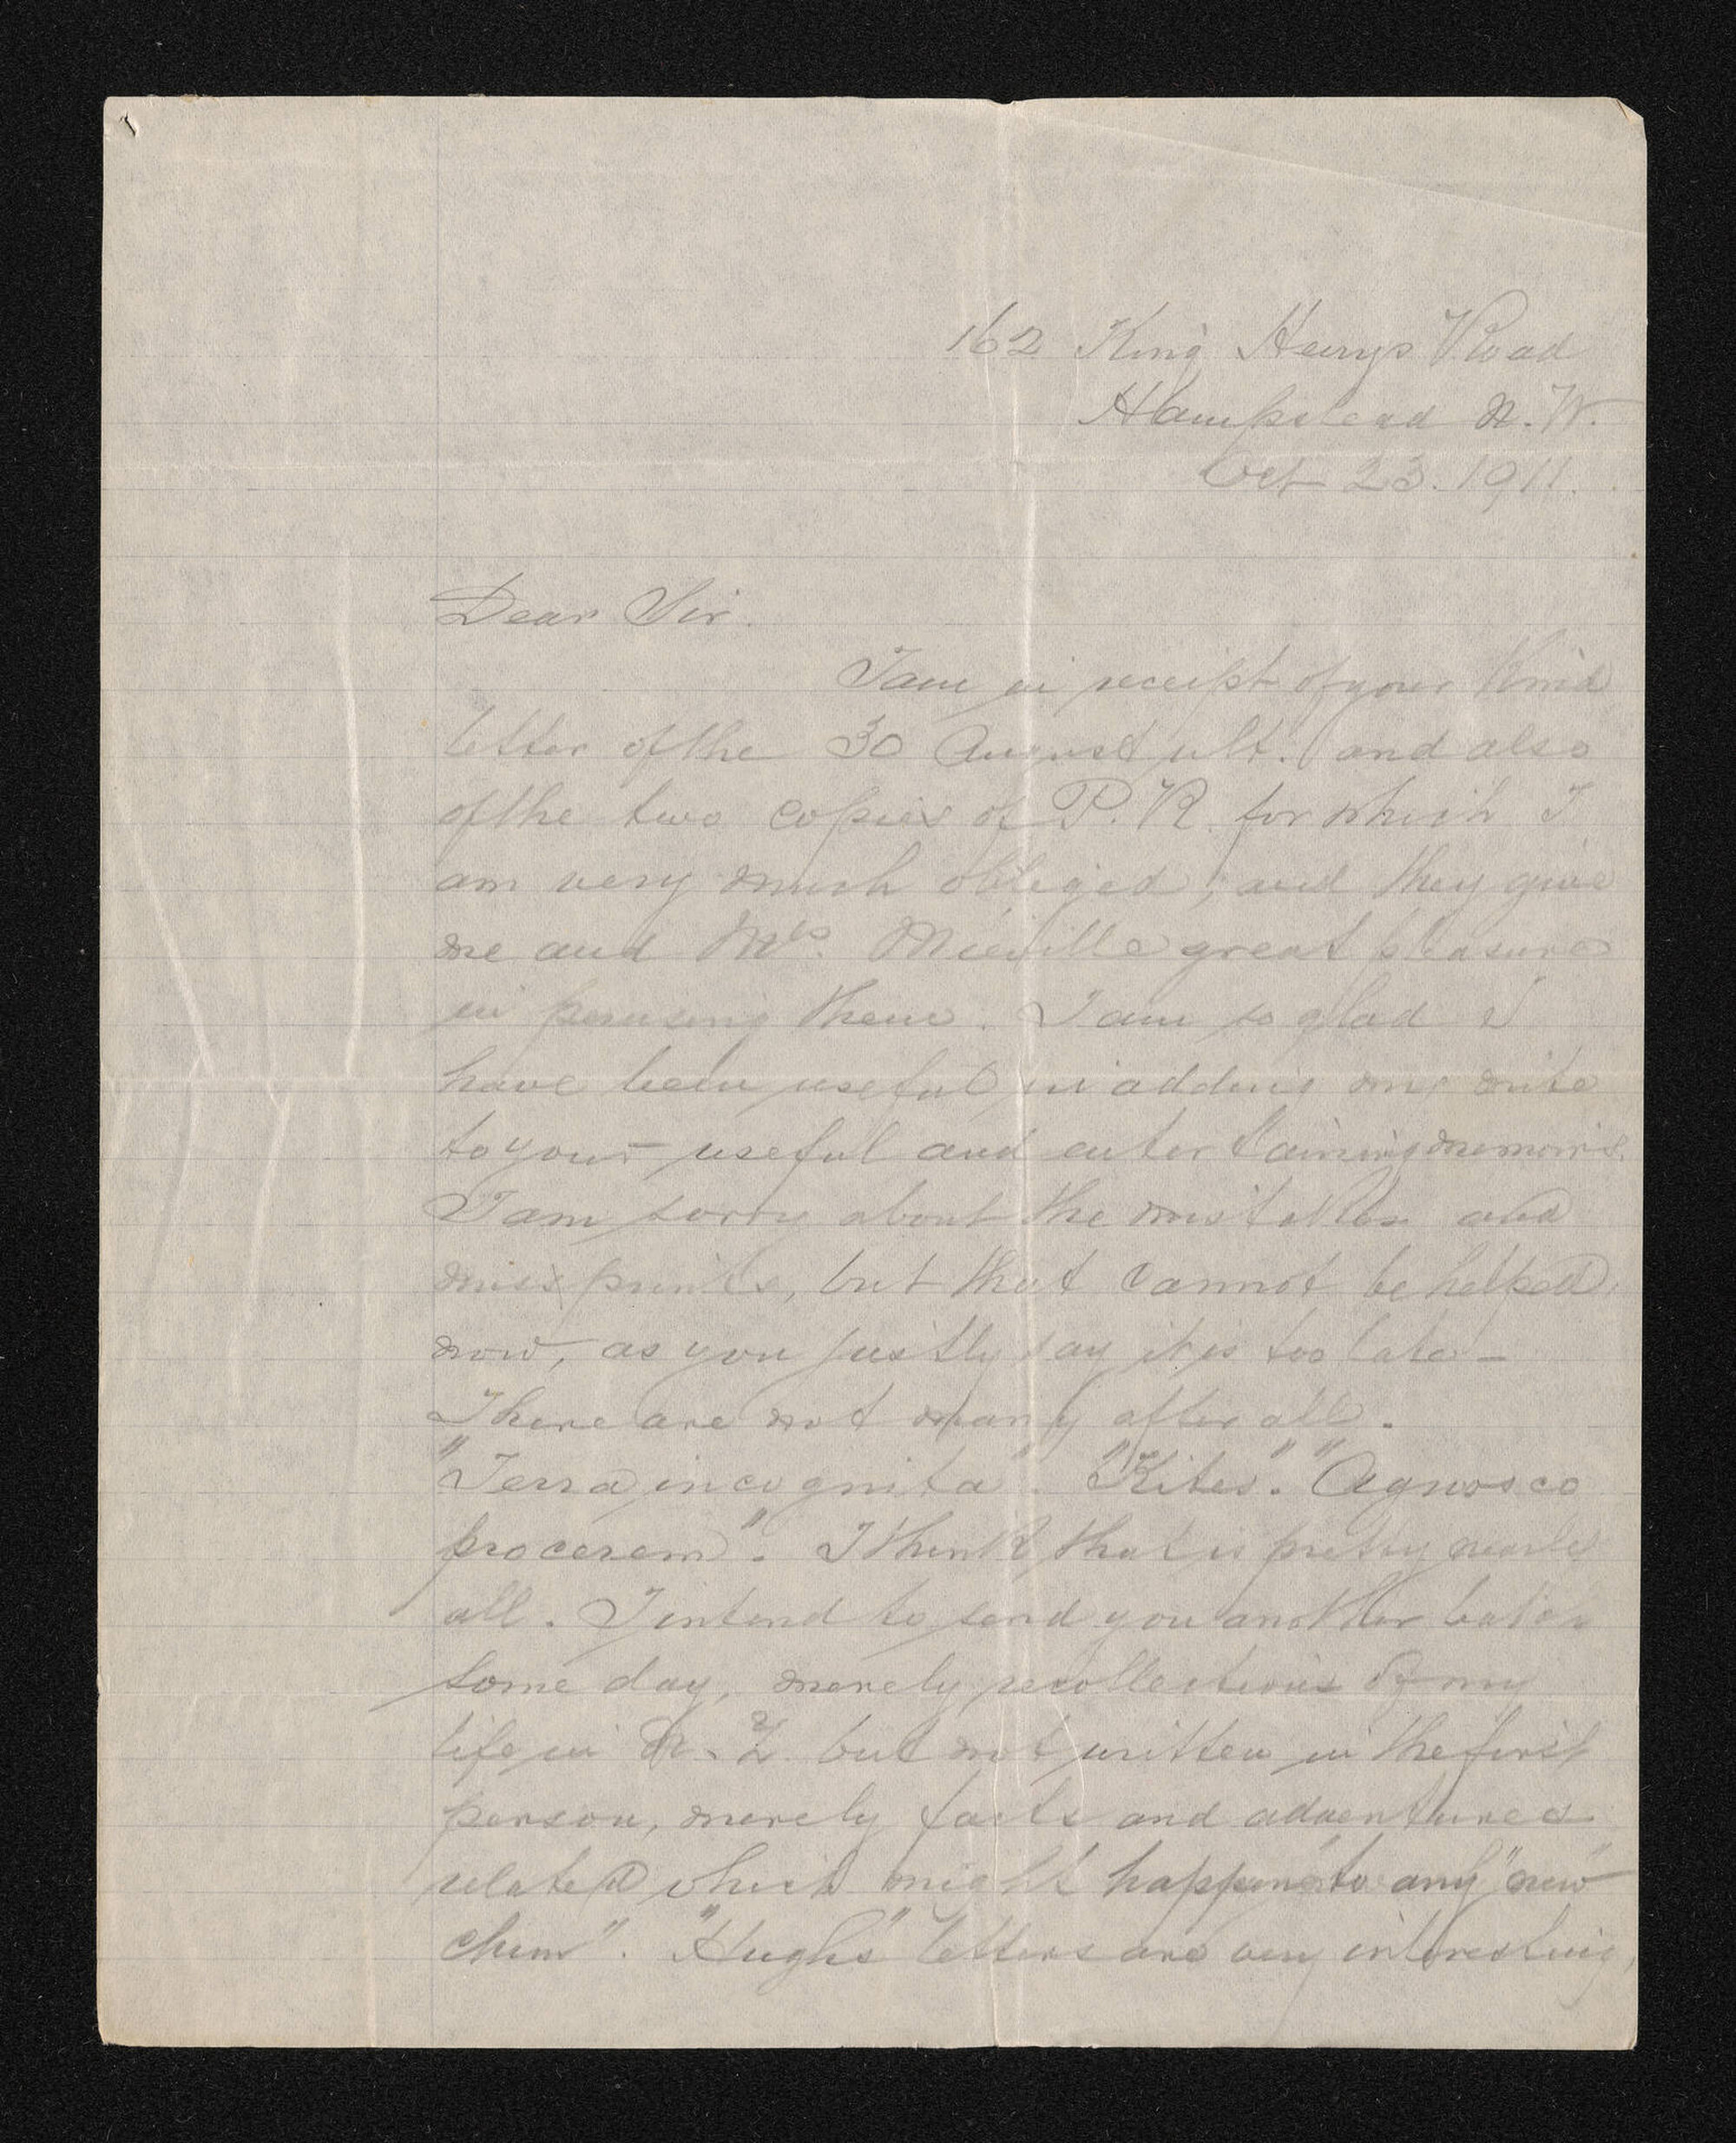 162 King Henrys Road
Hampstead N.W.
Oct 23. 1911.
Dear Sir.
I am in receipt of your kind
letter of the 30 August ult. and also
of the two copies of P.R. for which I
am very much obliged; and they give
me and Mrs. Mieville great pleasure
in perusing them. I am so glad I
have been useful in adding my mite
to your useful and entertaining memoirs.
I am sorry about the mistakes and
misprints, but that cannot be helped
now, as you justly say it is too late -
There are not many after all.
"Terra incognita". "Kites". "Agnosco
procerem". I think that is pretty nearly
all. I intend to send you another batch
some day, merely recollections of my
life in N.Z. but not written in the first
person, merely facts and adventures
related which might happen to any "new
chum". "Hughs" letters are very interesting,